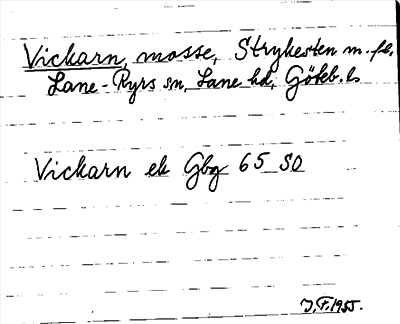 Vickarn, mosse, Strykesten m. fl.
Lane-Ryrs sn, Lane hd, Göteb. ls
Vickarn ek Gbg 65 SO
J.F. 1955.